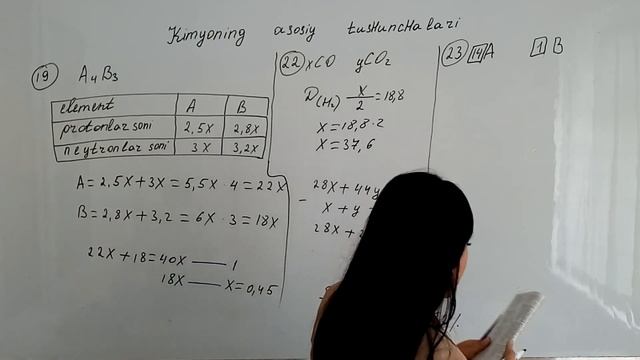 Kimyoning asosiy tushunchalari
19 A₄B₃
element A B
protonlar soni 2,5x 2,8x
neytronlar soni 3x 3,2x
A = 2,5x + 3x = 5,5x · 4 = 22x
B = 2,8x + 3,2 = 6x · 3 = 18x
22x + 18 = 40x — 1
18x — x = 0,45
22 xCO yCO₂
D(H₂) x/2 = 18,8
x = 18,8 · 2
x = 37,6
- 28x + 44y
x + y
28x +
23 14 A 1 B